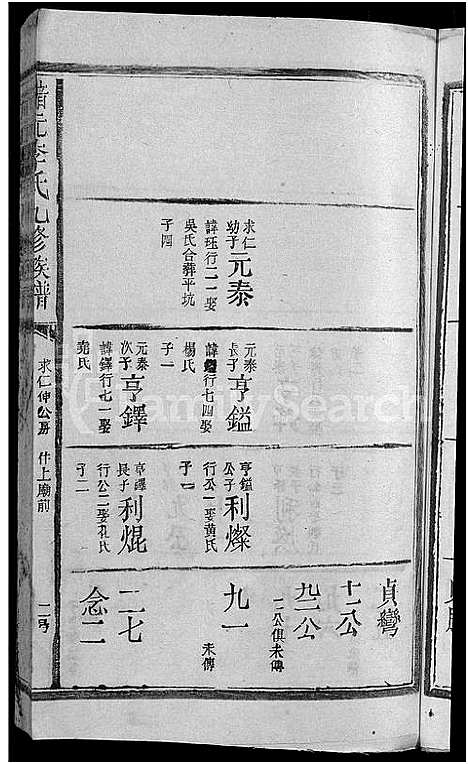 求仁
幼子
元泰
諱珏行二一娶
吳氏合葬平坑
子四
元泰
長子
亨鎰
諱鎰行七四娶
楊氏
子一
元泰
次子
亨鐸
諱鐸行七一娶
堯氏
亨鎰
公子
利燦
行公一娶黃氏
子一
亨鐸
長子
利焜
行公二娶孔氏
子二
貞鸞
十二公
九二公
一二公俱未傳
九一
未傳
二七
念二
李氏九修族譜
求仁仲公房
什上廟前
FamilySearch